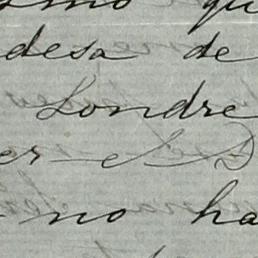 smo qu
desa de
Londre
er el S
no ha